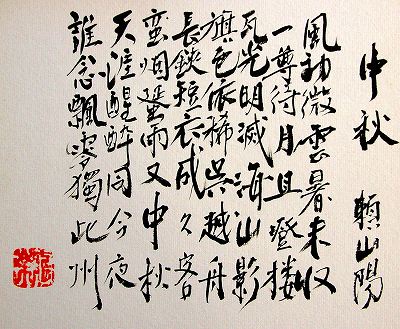 中秋　頼山陽
風動微雲暑未収
一尊待月且登楼
瓦光明滅海山影
旗色依稀呉越舟
長鋏短衣成久客
蛮烟蜑雨又中秋
天涯醒醉同今夜
誰念飄零獨此州